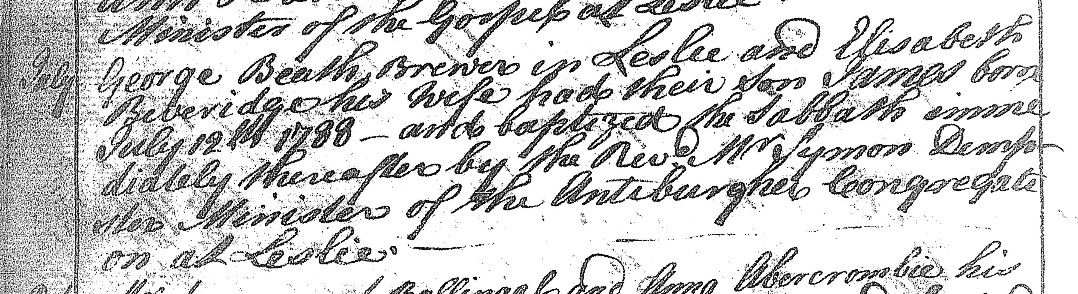 Minister of the Gospel at Leslie
July George Beath Brewer in Leslie and Elisabeth
Beveridge his Wife had their Son James born
July 12th 1788 – and baptized the Sabbath imme
diately thereafter by the Revd. Mr Symon Demp-
ster Minister of the Antiburgher Congregati
on at Leslie.
Ballingal and Anna Abercrombie his